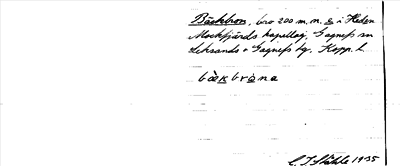 Bäckbron, bro 200 m. n. å i Heden
Mockfjärds kapellag, Gagnefs sn
Leksands o Gagnefs tg. Kopp. l.
bäkbròna
C. I. Ståhle 1935